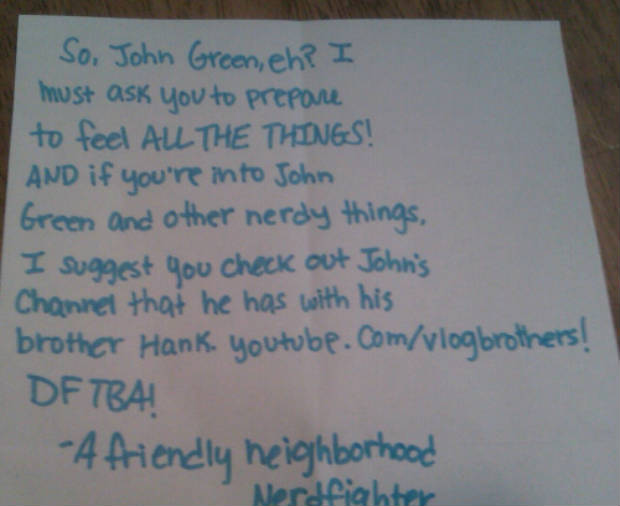 So, John Green, eh? I
must ask you to prepare
to feel ALL THE THINGS!
AND if you're into John
Green and other nerdy things,
I suggest you check out John's
Channel that he has with his
brother Hank. youtube.Com/vlogbrothers!
DFTBA!
-A friendly neighborhood
Nerdfighter